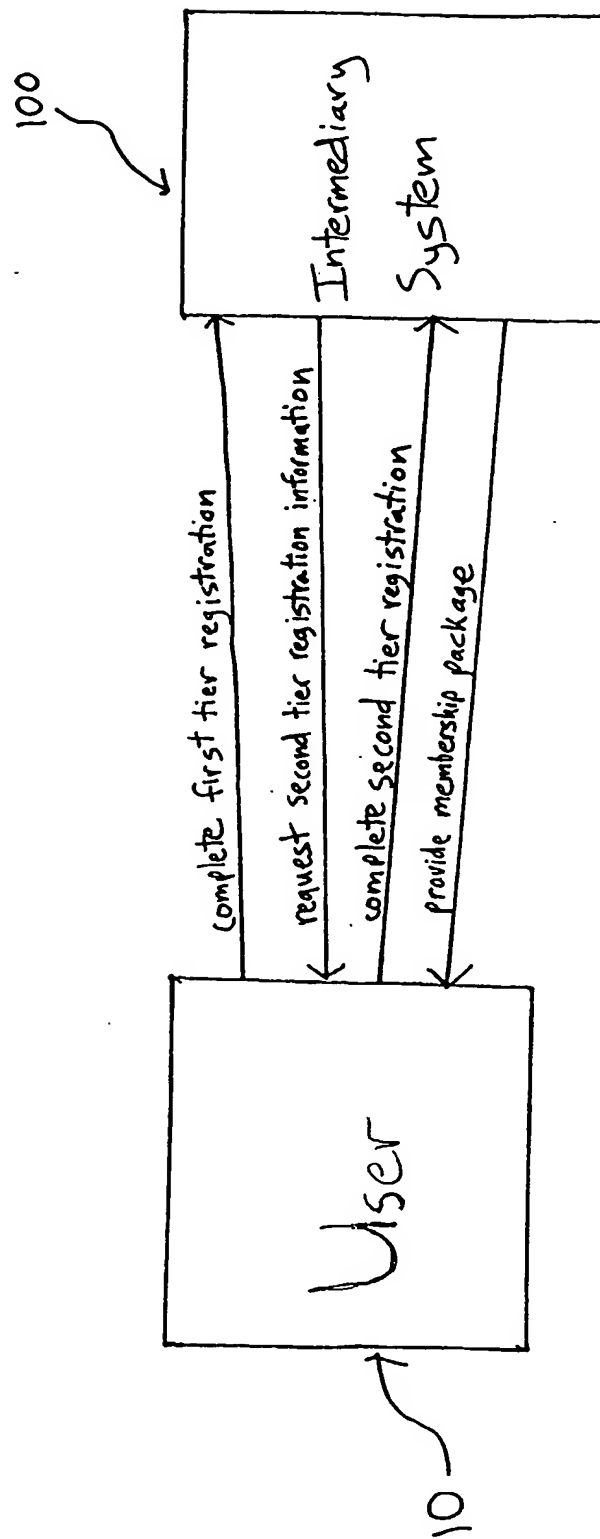 100
Intermediary
System
complete first tier registration
request second tier registration information
complete second tier registration
provide membership package
User
10